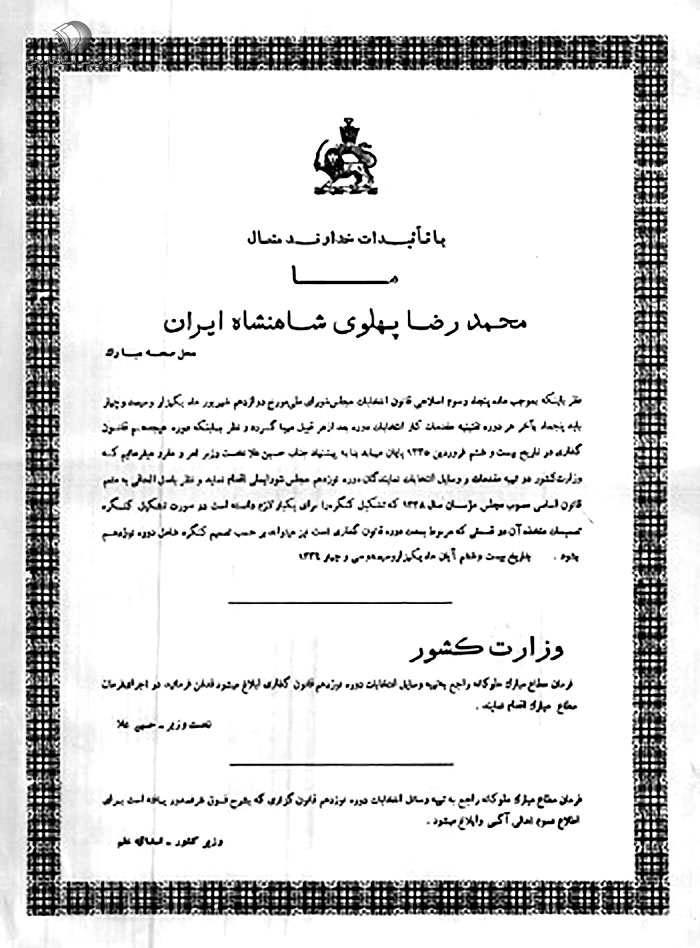 با تأییدات خداوند متعال
ما
محمد رضا پهلوی شاهنشاه ایران
محل صحه مبارک
نظر باینکه بموجب ماده پنجاه وسوم اصلاحی قانون انتخابات مجلس شورای ملی مورخ دوازدهم شهریور ماه یکهزار وسیصد وچهار
باید پنجماه بآخر هر دوره تقنینیه مقدمات کار انتخابات دوره بعد از هر قبیل مهیا گردد و نظر باینکه دوره هیجدهم قانون
گذاری در تاریخ بیست و ششم فروردین ۱۳۳۵ پایان مییابد بنا به پیشنهاد جناب حسین علا نخست وزیر امر و مقرر میفرمائیم که
وزارت کشور در تهیه مقدمات و وسایل انتخابات نمایندگان دوره نوزدهم مجلس شورایملی اقدام نماید و نظر باصل الحاقی به متمم
قانون اساسی مصوب مجلس مؤسسان سال ۱۳۲۸ که تشکیل کنگره را برای یکبار لازم دانسته است در صورت تشکیل کنگره
تصمیمات متخذه آن در قسمتی که مربوط بمدت دوره قانون گذاری است نیز میتواند بر حسب تصمیم کنگره شامل دوره نوزدهم
بشود . بتاریخ بیست وششم آبان ماه یکهزار وسیصد وسی و چهار ۱۳۳۴
وزارت کشور
فرمان مطاع مبارک ملوکانه راجع به تهیه وسایل انتخابات دوره نوزدهم قانون گذاری ابلاغ میشود قدغن فرمائید در اجرای فرمان
مطاع مبارک اقدام نمایند .
نخست وزیر ـ حسین علا
فرمان مطاع مبارک ملوکانه راجع به تهیه وسائل انتخابات دوره نوزدهم قانون گزاری که بشرح فوق شرفصدور یافته است برای
اطلاع عموم اهالی آگهی و ابلاغ میشود .
وزیر کشور ـ اسدالله علم